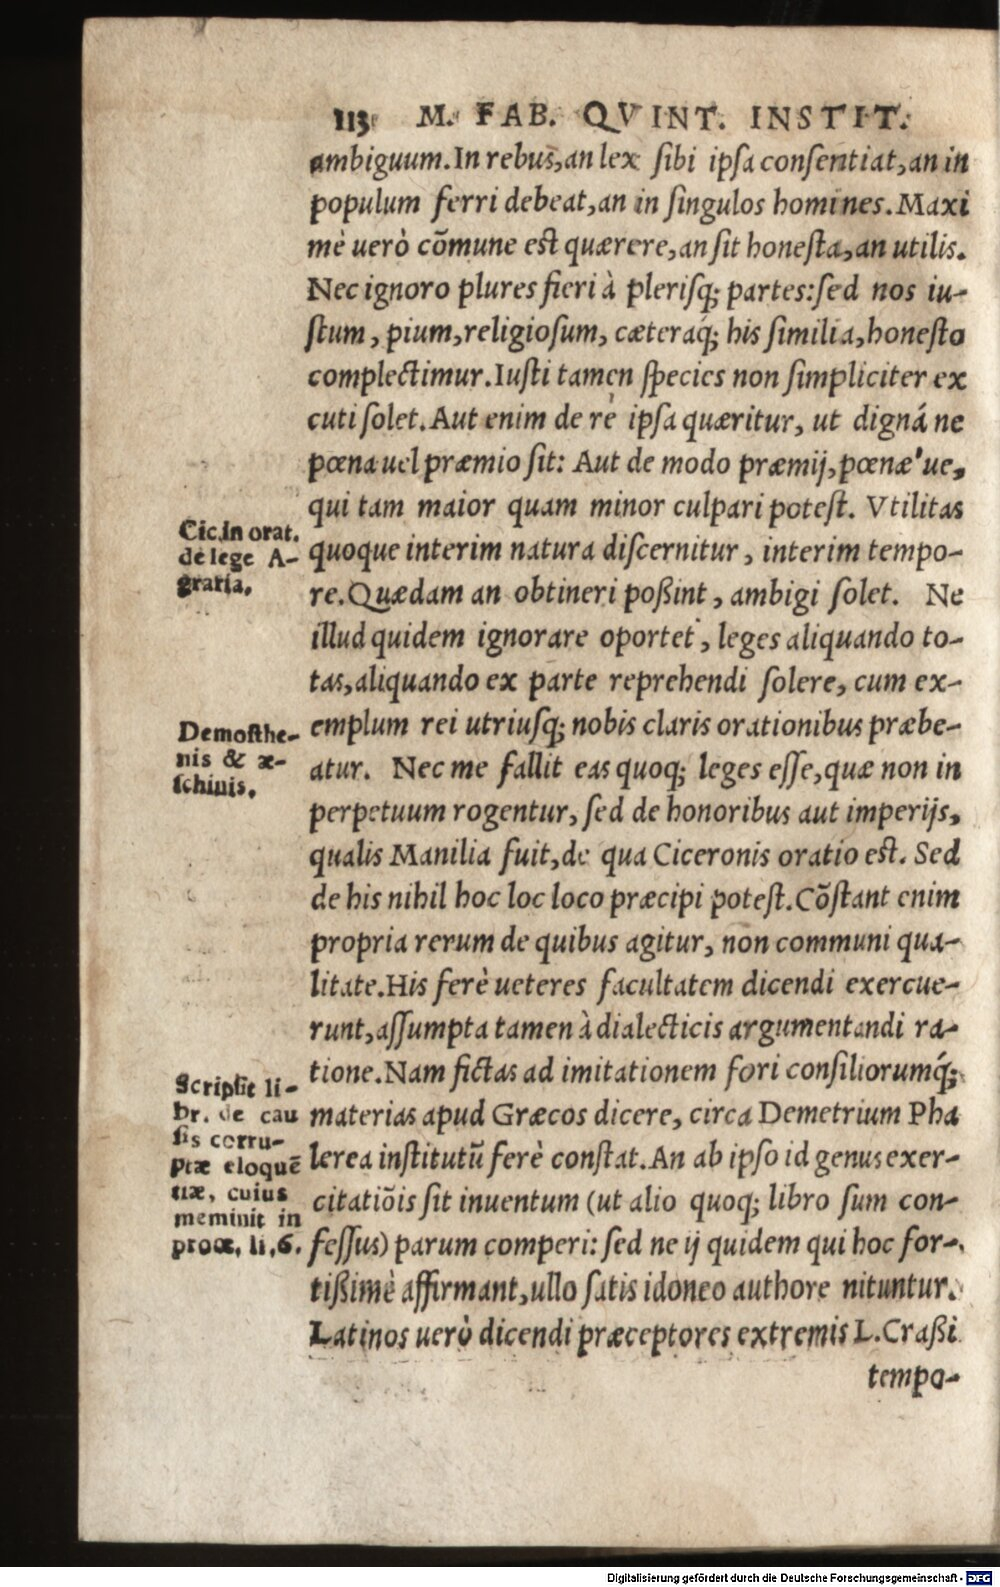 113 M. FAB. QVINT. INSTIT.
ambiguum. In rebus, an lex sibi ipsa consentiat, an in
populum ferri debeat, an in singulos homines. Maxi
mè uerò cõmune est quærere, an sit honesta, an utilis.
Nec ignoro plures fieri à plerisq; partes: sed nos iu-
stum, pium, religiosum, cæteraq́; his similia, honesto
complectimur. Iusti tamen species non simpliciter ex
cuti solet. Aut enim de re ipsa quæritur, ut digná ne
pœna uel præmio sit: Aut de modo præmij, pœnæ'ue,
qui tam maior quam minor culpari potest. Vtilitas
quoque interim natura discernitur, interim tempo-
re. Quædam an obtineri poßint, ambigi solet. Ne
illud quidem ignorare oportet, leges aliquando to-
tas, aliquando ex parte reprehendi solere, cum ex-
emplum rei utriusq; nobis claris orationibus præbe-
atur. Nec me fallit eas quoq; leges esse, quæ non in
perpetuum rogentur, sed de honoribus aut imperijs,
qualis Manilia fuit, de qua Ciceronis oratio est. Sed
de his nihil hoc loc loco præcipi potest. Cõstant enim
propria rerum de quibus agitur, non communi qua-
litate. His ferè ueteres facultatem dicendi exercue-
runt, assumpta tamen à dialecticis argumentandi ra-
tione. Nam fictas ad imitationem fori consiliorumq́;
materias apud Græcos dicere, circa Demetrium Pha
lerea institutũ ferè constat. An ab ipso id genus exer-
citatiõis sit inuentum (ut alio quoq; libro sum con-
fessus) parum comperi: sed ne ij quidem qui hoc for-
tißimè affirmant, ullo satis idoneo authore nituntur.
Latinos uerò dicendi præceptores extremis L. Craßi
tempo-
Cic. in orat.
de lege A-
graria.
Demosthe-
nis & æ-
schinis.
Scripsit li-
br. de cau
sis corru-
ptæ eloquẽ
tiæ, cuius
meminit in
proœ. li. 6.
Digitalisierung gefördert durch die Deutsche Forschungsgemeinschaft - DFG